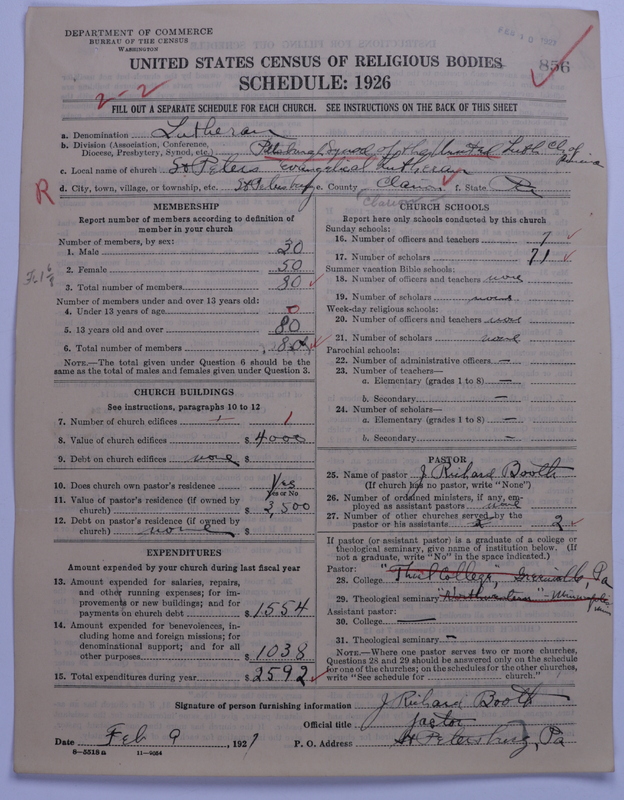 DEPARTMENT OF COMMERCE
BUREAU OF THE CENSUS
WASHINGTON
UNITED STATES CENSUS OF RELIGIOUS BODIES
856
SCHEDULE: 1926
2-2
FILL OUT A SEPARATE SCHEDULE FOR EACH CHURCH. SEE INSTRUCTIONS ON THE BACK OF THIS SHEET
a. Denomination Lutheran
b. Division (Association, Conference, Diocese, Presbytery, Synod, etc.) Pittsburgh Synod of the United Luth Ch of
c. Local name of church St Peters Evangelical Lutheran
R
d. City, town, village, or township, etc. St Petersburg e. County Clarion f. State Pa
Clarion
MEMBERSHIP
Report number of members according to definition of
member in your church
Number of members, by sex:
1. Male 30
2. Female 50
3. Total number of members 80
Number of members under and over 13 years old:
4. Under 13 years of age 0
5. 13 years old and over 80
6. Total number of members 80
NOTE.—The total given under Question 6 should be the
same as the total of males and females given under Question 3.
CHURCH BUILDINGS
See instructions, paragraphs 10 to 12
7. Number of church edifices 1 1
8. Value of church edifices $ 4000
9. Debt on church edifices none $
10. Does church own pastor's residence Yes
Yes or No
11. Value of pastor's residence (if owned by
church) $ 3,500
12. Debt on pastor's residence (if owned by
church) none $
EXPENDITURES
Amount expended by church during last fiscal year
13. Amount expended for salaries, repairs,
and other running expenses; for im-
provements or new buildings; and for
payments on church debt $ 1554
14. Amount expended for benevolences, in-
cluding home and foreign missions; for
denominational support; and for all
other purposes $ 1038
15. Total expenditures during year $ 2592
CHURCH SCHOOLS
Report here only schools conducted by this church
Sunday schools:
16. Number of officers and teachers 7
17. Number of scholars 71
Summer vacation Bible schools:
18. Number of officers and teachers none
19. Number of scholars none
Week-day religious schools:
20. Number of officers and teachers none
21. Number of scholars none
Parochial schools:
22. Number of administrative officers —
23. Number of teachers—
a. Elementary (grades 1 to 8) —
b. Secondary —
24. Number of scholars—
a. Elementary (grades 1 to 8) —
b. Secondary —
PASTOR
25. Name of pastor J Richard Booth
(If church has no pastor, write "None")
26. Number of ordained ministers, if any, em-
ployed as assistant pastors none
27. Number of other churches served by the
pastor or his assistants 2 2
If pastor (or assistant pastor) is a graduate of a college or
theological seminary, give name of institution below. (If
not a graduate, write "No" in the space indicated.)
Pastor:
28. College "Thiel College," Greenville, Pa
29. Theological seminary "Northwestern" - Minneapolis
Assistant pastor:
30. College —
31. Theological seminary —
NOTE.—Where one pastor serves two or more churches,
Questions 28 and 29 should be answered only on the schedule
for one of the churches; on the schedules for the other churches,
write "See schedule for church."
Signature of person furnishing information J Richard Booth
Official title Pastor
Date Feb 9, 1927 P. O. Address St Petersburg, Pa
8—5518a 11—9054